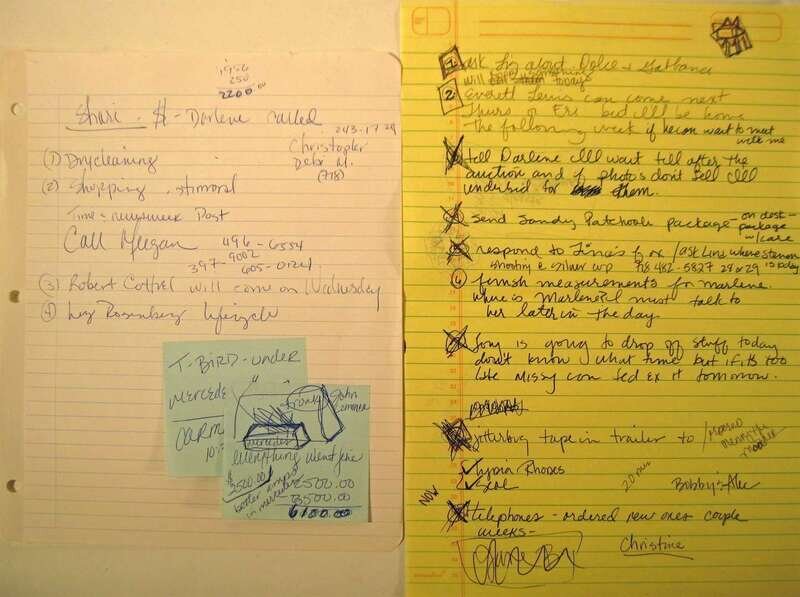 1956
250
2200.00
Shari - $ - Darlene called
243-1729
Christopher
Debi M.
(718)
(1) Drycleaning
(2) Shopping
Time - newsweek Post
Call Meegan 496-6554
9002
397- 605-0124
(3) Robert Cottrel will come on Wednesday
(4) Liz Rosenberg lifecycle
T-BIRD-UNDER
MERCEDE
CARM
John
Mercedes
everything went fine
$3500.00
better
in
2500.00
3500.00
6100.00
1. ask Liz about Dolce & Gabbana
will today
2. Everett Lewis can come next
Thurs or Fri but I'll be home
the following week if he can wait to meet
with me
tell Darlene I'll wait till after the
auction and if photos don't sell I'll
underbid for them.
send Sandy Patchouli package - on desk -
package
w/care
respond to
is today
furnish measurements for marlene.
where is Marlene? I must talk to
her later in the day.
Tony is going to drop off stuff today
don't know what time but if it's too
late Missy can fed ex it tomorrow.
jitterbug tape in trailer to
Rhodes
20 min
Bobby's
NOW
telephones - ordered new ones couple
weeks -
Christine